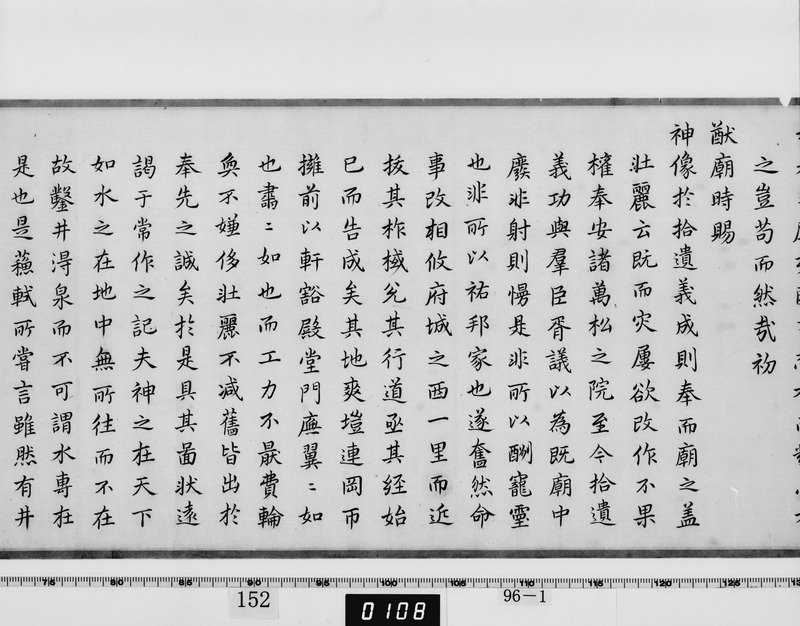 之豈苟而然哉初
猷廟時賜
神像於拾遺義成則奉而廟之蓋
壯麗云既而灾屢欲改作不果
權奉安諸萬松之院至今拾遺
義功與羣臣胥議以為既廟中
廢非射則愓是非所以酬寵靈
也非所以祐邦家也遂奮然命
事改相攸府城之西一里而近
拔其柞棫兊其行道亟其經始
已而告成矣其地爽塏連岡帀
擁前以軒豁殿堂門廡翼〻如
也肅〻如也而工力不㝡費輪
奐不嫌侈壯麗不減舊皆出於
奉先之誠矣於是具其啚狀遠
謁于常作之記夫神之在天下
如水之在地中無所往而不在
故鑿井淂泉而不可謂水專在
是也是蘓軾所嘗言雖然有井
75 80 85 90 95 100 105 110 115 120 125
152
0108
96-1